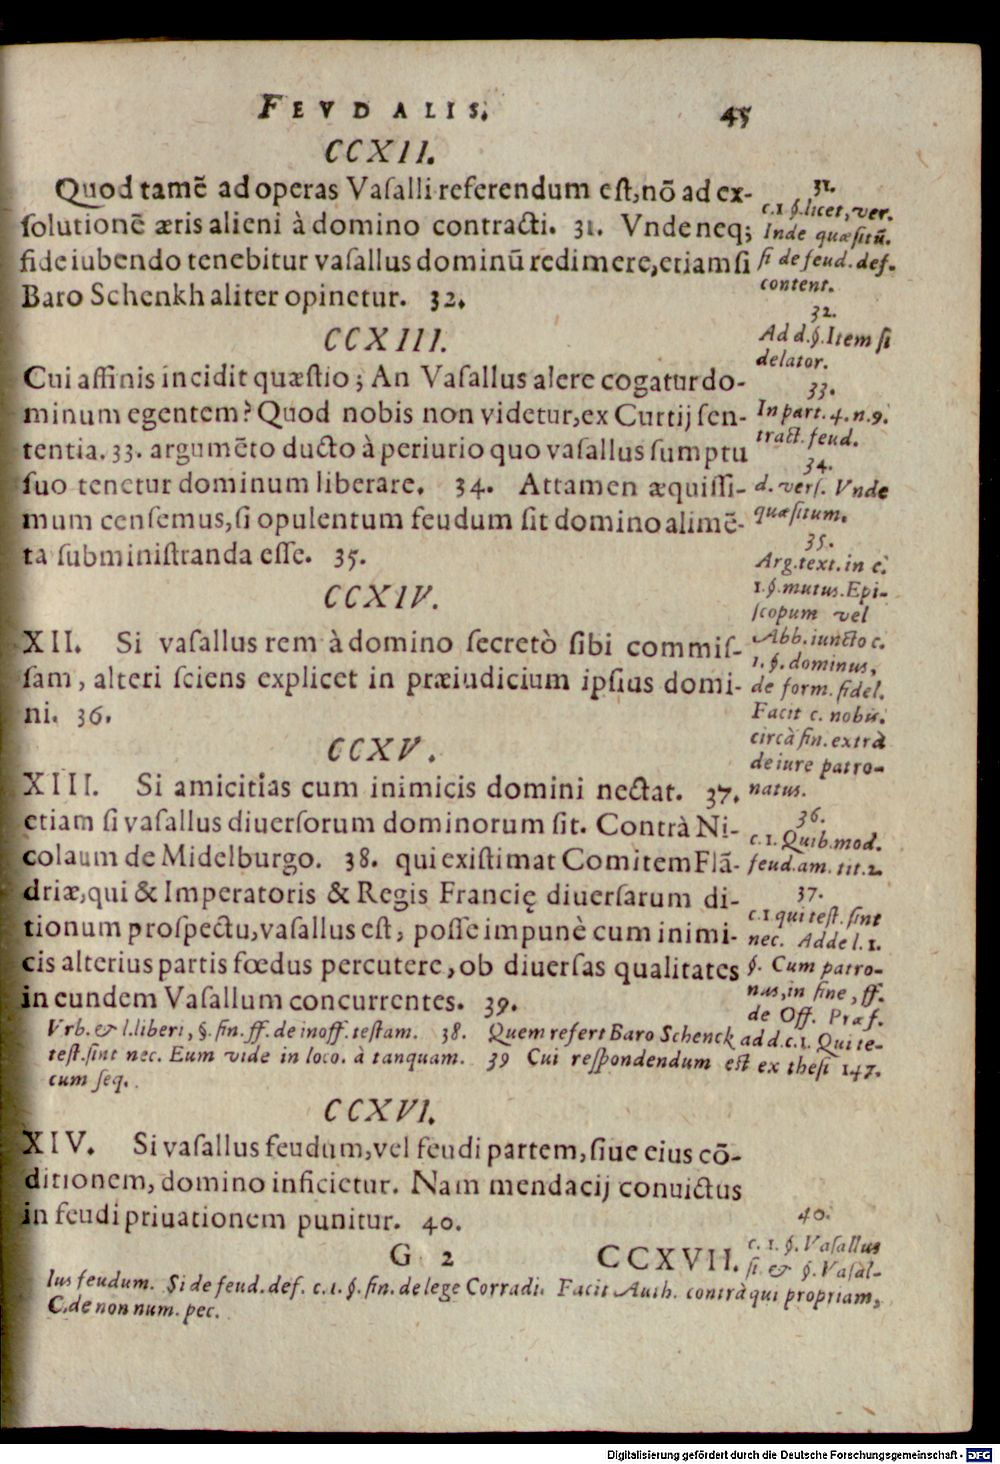 FEVDALIS. 45
CCXII.
Quod tamē ad operas Vaſalli referendum eſt, nō ad ex-
ſolutionē æris alieni à domino contracti. 31. Vnde neq;
fideiubendo tenebitur vaſallus dominū redimere, etiamſi
Baro Schenkh aliter opinetur. 32.
31.
c.1 §.licet, ver.
Inde quæſitū.
ſi de feud. def.
content.
32.
Ad d.§. Item ſi
delator.
CCXIII.
Cui affinis incidit quæſtio; An Vaſallus alere cogatur do-
minum egentem? Quod nobis non videtur, ex Curtij ſen-
tentia. 33. argumēto ducto à periurio quo vaſallus ſumptu
ſuo tenetur dominum liberare. 34. Attamen æquiſſi-
mum cenſemus, ſi opulentum feudum ſit domino alimē-
ta ſubminiſtranda eſſe. 35.
33.
In part. 4. n. 9.
tract. feud.
34.
d. verſ. Vnde
quæſitum.
35.
Arg. text. in c.
1. §. mutus. Epi-
ſcopum vel
Abb. iuncto c.
1. §. dominus,
de form. fidel.
Facit c. nobis.
circà fin. extrà
de iure patro-
natus.
CCXIV.
XII. Si vaſallus rem à domino ſecretò ſibi commiſ-
ſam, alteri ſciens explicet in præiudicium ipſius domi-
ni. 36.
CCXV.
XIII. Si amicitias cum inimicis domini nectat. 37.
etiam ſi vaſallus diuerſorum dominorum ſit. Contrà Ni-
colaum de Midelburgo. 38. qui exiſtimat Comitem Flā-
driæ, qui & Imperatoris & Regis Francię diuerſarum di-
tionum proſpectu, vaſallus eſt, poſſe impunè cum inimi-
cis alterius partis fœdus percutere, ob diuerſas qualitates
in eundem Vaſallum concurrentes. 39.
36.
c.1. Quib. mod.
feud. am. tit. 2.
37.
c.1 qui teſt. ſint
nec. Adde l. 1.
§. Cum patro-
nus, in fine, ff.
de Off. Præf.
Vrb. & l. liberi, §. fin. ff. de inoff. teſtam. 38. Quem refert Baro Schenck ad d.c.1. Qui te-
teſt. ſint nec. Eum vide in loco. à tanquam. 39 Cui reſpondendum eſt ex theſi 147.
cum ſeq.
CCXVI.
XIV. Si vaſallus feudum, vel feudi partem, ſiue eius cō-
ditionem, domino inficietur. Nam mendacij conuictus
in feudi priuationem punitur. 40.
40.
c. 1. §. Vaſallus
ſi. & §. Vaſal-
G 2 CCXVII.
lus feudum. Si de feud. def. c. 1. §. fin. de lege Corradi. Facit Auth. contrà qui propriam,
C. de non num. pec.
Digitalisierung gefördert durch die Deutsche Forschungsgemeinschaft - DFG